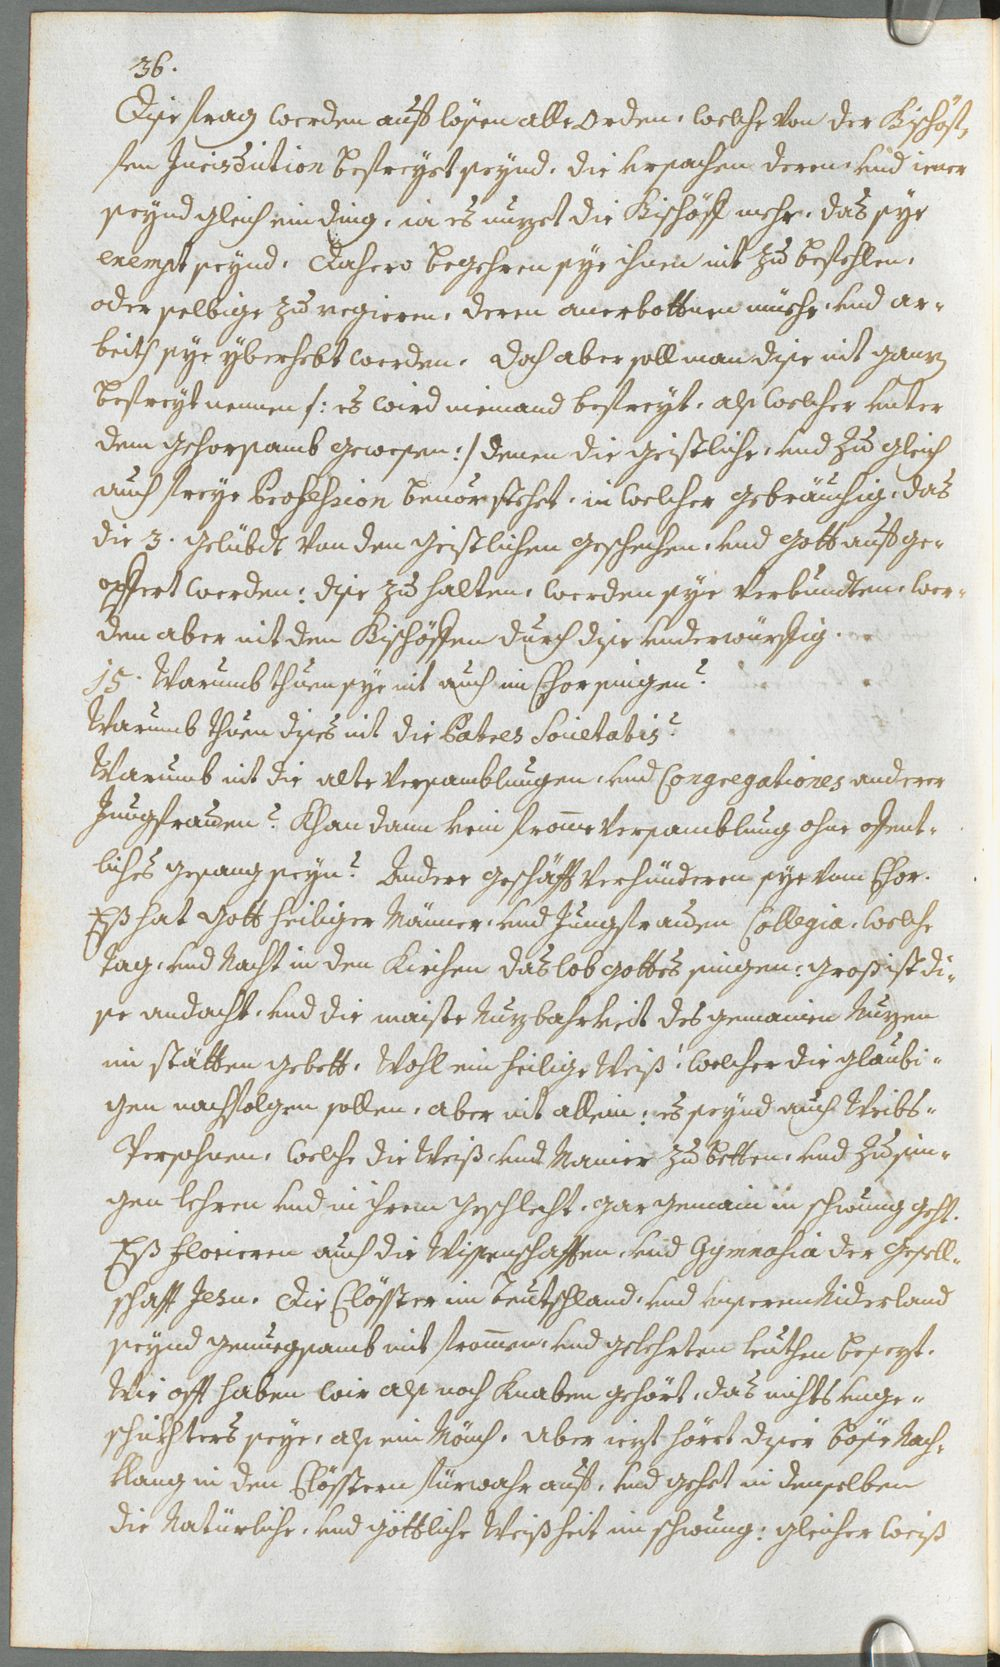 36.
Dise frag werden auflösen alle Orden, welche von der Bischöf-
fen Jurisdiction befreyet seynd. die ursachen deren, und iener
seynd gleich ein ding, ia es nuzet die Bischöff mehr, das sye
exempt seynd. Dahero begehren sye ihnen nit zu befehlen,
oder selbige zu regieren, deren anerbottnen mühe, und ar-
beith sye yberhebt werden. Doch aber soll man dise nit ganz
befreyt nennen /: es wird niemand befreyt, als welcher unter
dem gehorsamb gewesen :/ denen die geistliche, und zu gleich
auch freye Profession bevor stehet, in welcher gebräuchig, das
die 3. gelübdt von den geistlichen geschechen, und Gott aufge-
opffert werden: dise zu halten, werden sye verbundten, wer-
den aber nit den Bischöffen durch dise underwürffig.
15. Warumb thuen sye nit auch im Chor singen?
Warumb thuen dises nit die Patres Societatis?
Warumb nit die alte versamblungen, und Congregationes anderer
Jungfrauen? Khan dann kein fromme versamblung ohne offent-
liches gesang seyn? Andere geschäfft verhünderen sye vom Chor.
Eß hat Gott heiliger Männer, und Jungfrauen Collegia, welche
tag, und Nacht in den Kirchen das lob Gottes singen: groß ist di-
se andacht, und die maiste Nuzbahrkeit des gemainen Nuzen
im stätten gebett. Wohl ein heilige Weiß! welcher die glaubi-
gen nachfolgen sollen, aber nit allein: es seynd auch Weibs-
Persohnen, welche die Weiß, und Manier zu betten, und zu sin-
gen lehren und in ihrem geschlecht, gar gemain in schwung geht.
Eß florieren auch die Wissenschafften, und Gymnasia der Gesell-
schafft Jesu. Die Clösster im Teutschland, und unserem Niderland
seynd genuegsamb mit frommen, und gelehrten leuthen besezt.
Wie offt haben wir als noch Knaben gehört, das nichts unge-
schickhters seye, als ein Mönch. Aber iezt höret diser böse Nach-
klang in den Clösstern fürwahr auf, und gehet in denselben
die Natürliche, und göttliche Weißheit im schwung: gleicher weiß